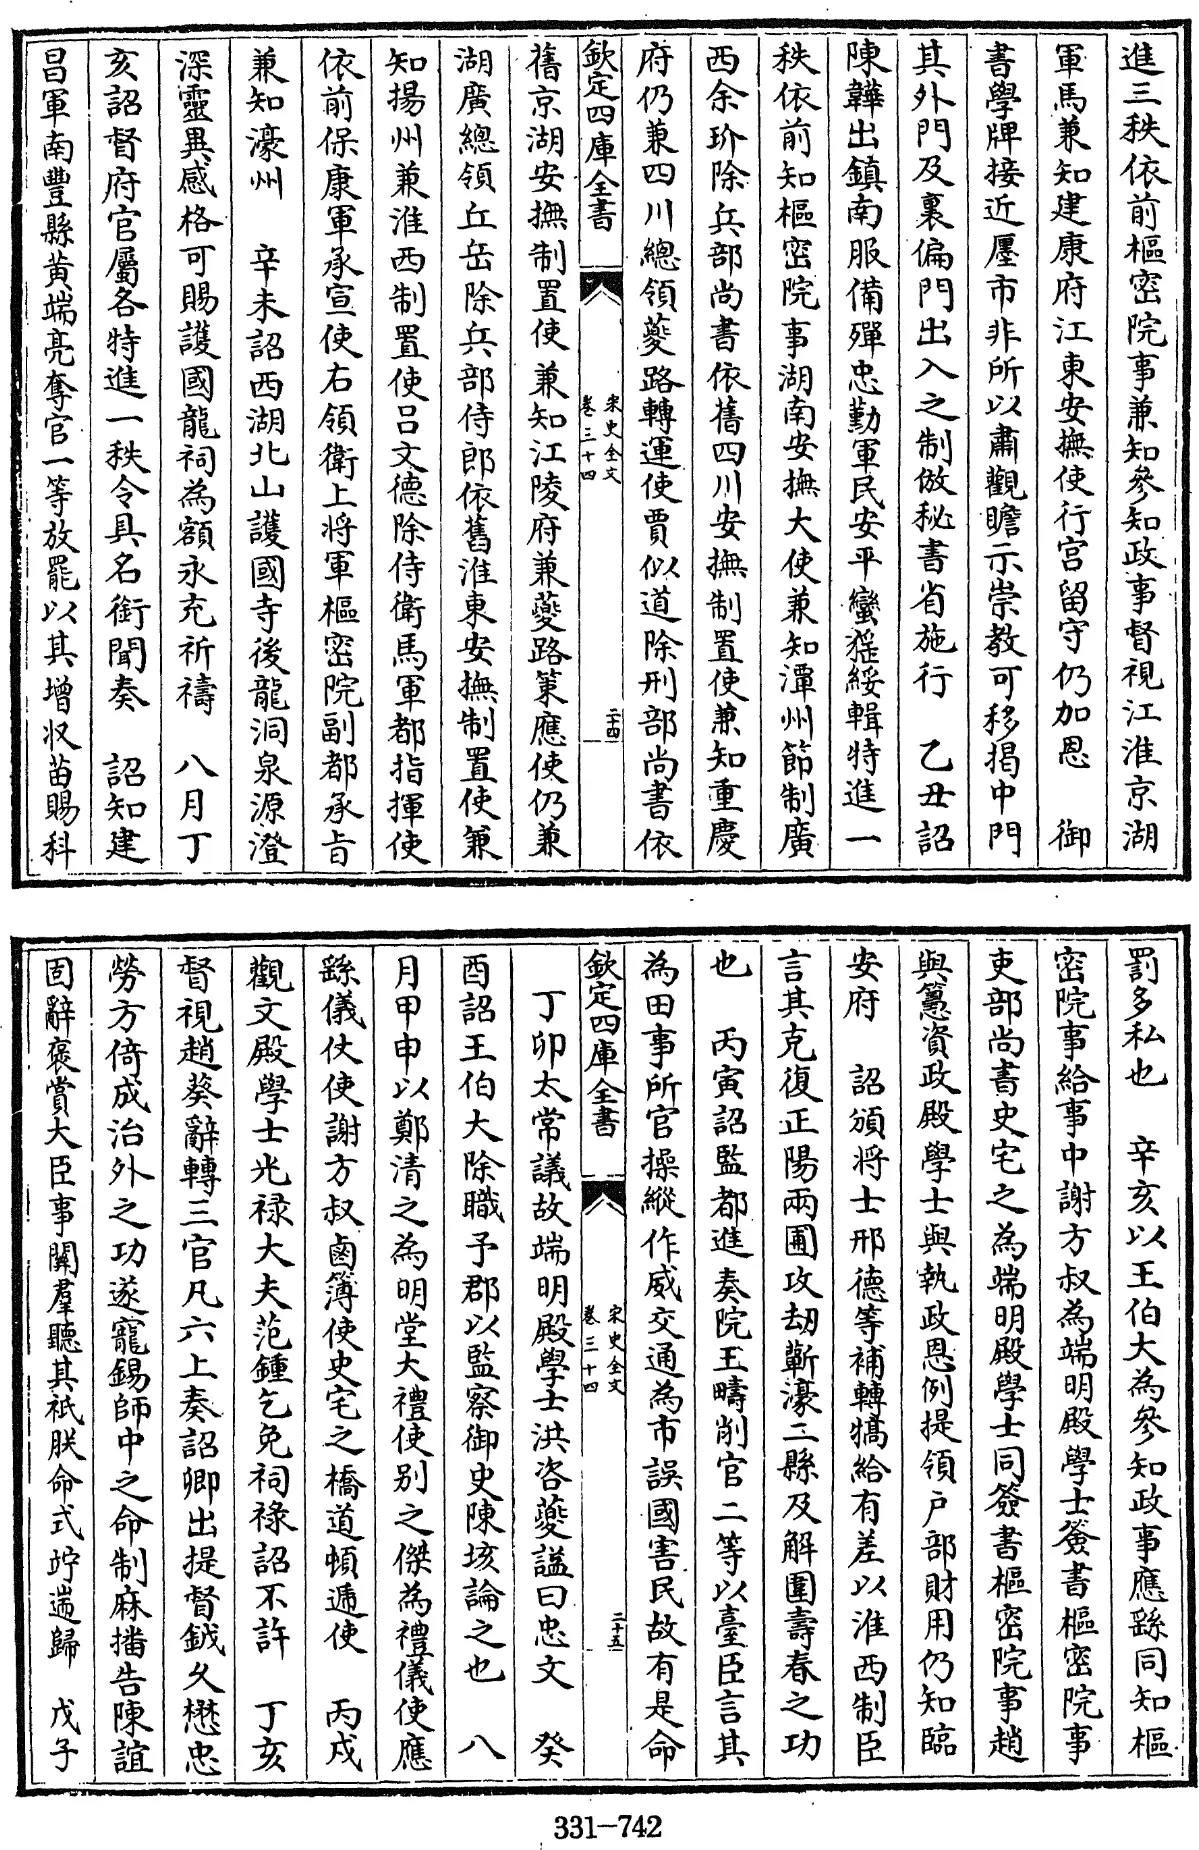 進三秩依前樞密院事兼知參知政事督視江淮京湖
軍馬兼知建康府江東安撫使行宮留守仍加恩　御
書學牌接近㕓市非所以肅觀瞻示崇教可移揭中門
其外門及裏偏門出入之制倣秘書省施行　乙丑詔
陳韡出鎮南服備殫忠勤軍民安平蠻猺綏輯特進一
秩依前知樞密院事湖南安撫大使兼知潭州節制廣
西余玠除兵部尚書依舊四川安撫制置使兼知重慶
府仍兼四川總領夔路轉運使賈似道除刑部尚書依
欽定四庫全書
宋史全文
卷三十四
二十四
舊京湖安撫制置使兼知江陵府兼夔路策應使仍兼
湖廣總領丘岳除兵部侍郎依舊淮東安撫制置使兼
知揚州兼淮西制置使呂文德除侍衛馬軍都指揮使
依前保康軍承宣使右領衛上將軍樞密院副都承旨
兼知濠州　辛未詔西湖北山護國寺後龍洞泉源澄
深靈異感格可賜護國龍祠為額永充祈禱　八月丁
亥詔督府官屬各特進一秩令具名銜聞奏　詔知建
昌軍南豐縣黃端亮奪官一等放罷以其增收苗賜科
罰多私也　辛亥以王伯大為參知政事應𦃓同知樞
密院事給事中謝方叔為端明殿學士簽書樞密院事
吏部尚書史宅之為端明殿學士同簽書樞密院事趙
與𥲅資政殿學士與執政恩例提領户部財用仍知臨
安府　詔頒將士邢德等補轉犒給有差以淮西制臣
言其克復正陽兩圃攻刼蘄濠二縣及解圍壽春之功
也　丙寅詔監都進奏院王疇削官二等以臺臣言其
為田事所官操縱作威交通為市誤國害民故有是命
欽定四庫全書
宋史全文
卷三十四
二十五
丁卯太常議故端明殿學士洪咨夔謚曰忠文　癸
酉詔王伯大除職予郡以監察御史陳垓論之也　八
月甲申以鄭清之為明堂大禮使别之傑為禮儀使應
𦃓儀仗使謝方叔鹵簿使史宅之橋道頓遞使　丙戌
觀文殿學士光禄大夫范鍾乞免祠祿詔不許　丁亥
督視趙葵辭轉三官凡六上奏詔卿出提督鉞久懋忠
勞方倚成治外之功遂寵錫師中之命制麻播告陳誼
固辭褒賞大臣事闗羣聽其祗朕命式竚遄歸　戊子
331-742